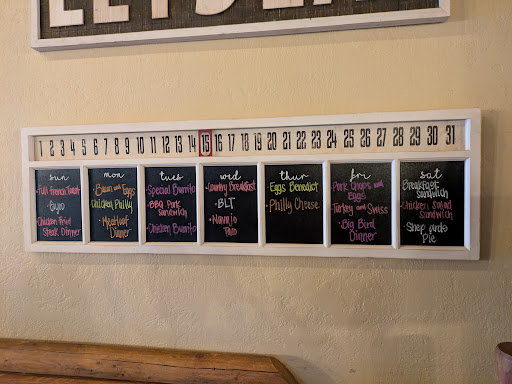 1 2 3 4 5 6 7 8 9 10 11 12 13 14 15 16 17 18 19 20 21 22 23 24 25 26 27 28 29 30 31
sun
Full French Toast
Chicken Fried
Steak Dinner
mon
Bacon and Eggs
Chicken Philly
Meatloaf
Dinner
tues
Special Burrito
BBQ Pork
Sandwich
Chicken Burrito
wed
Country Breakfast
BLT
Navajo
Taco
thur
Eggs Benedict
Philly Cheese
fri
Pork Chops and
Eggs
Turkey and Swiss
Big Bird
Dinner
sat
Breakfast
Sandwich
Chicken Salad
Sandwich
Pie